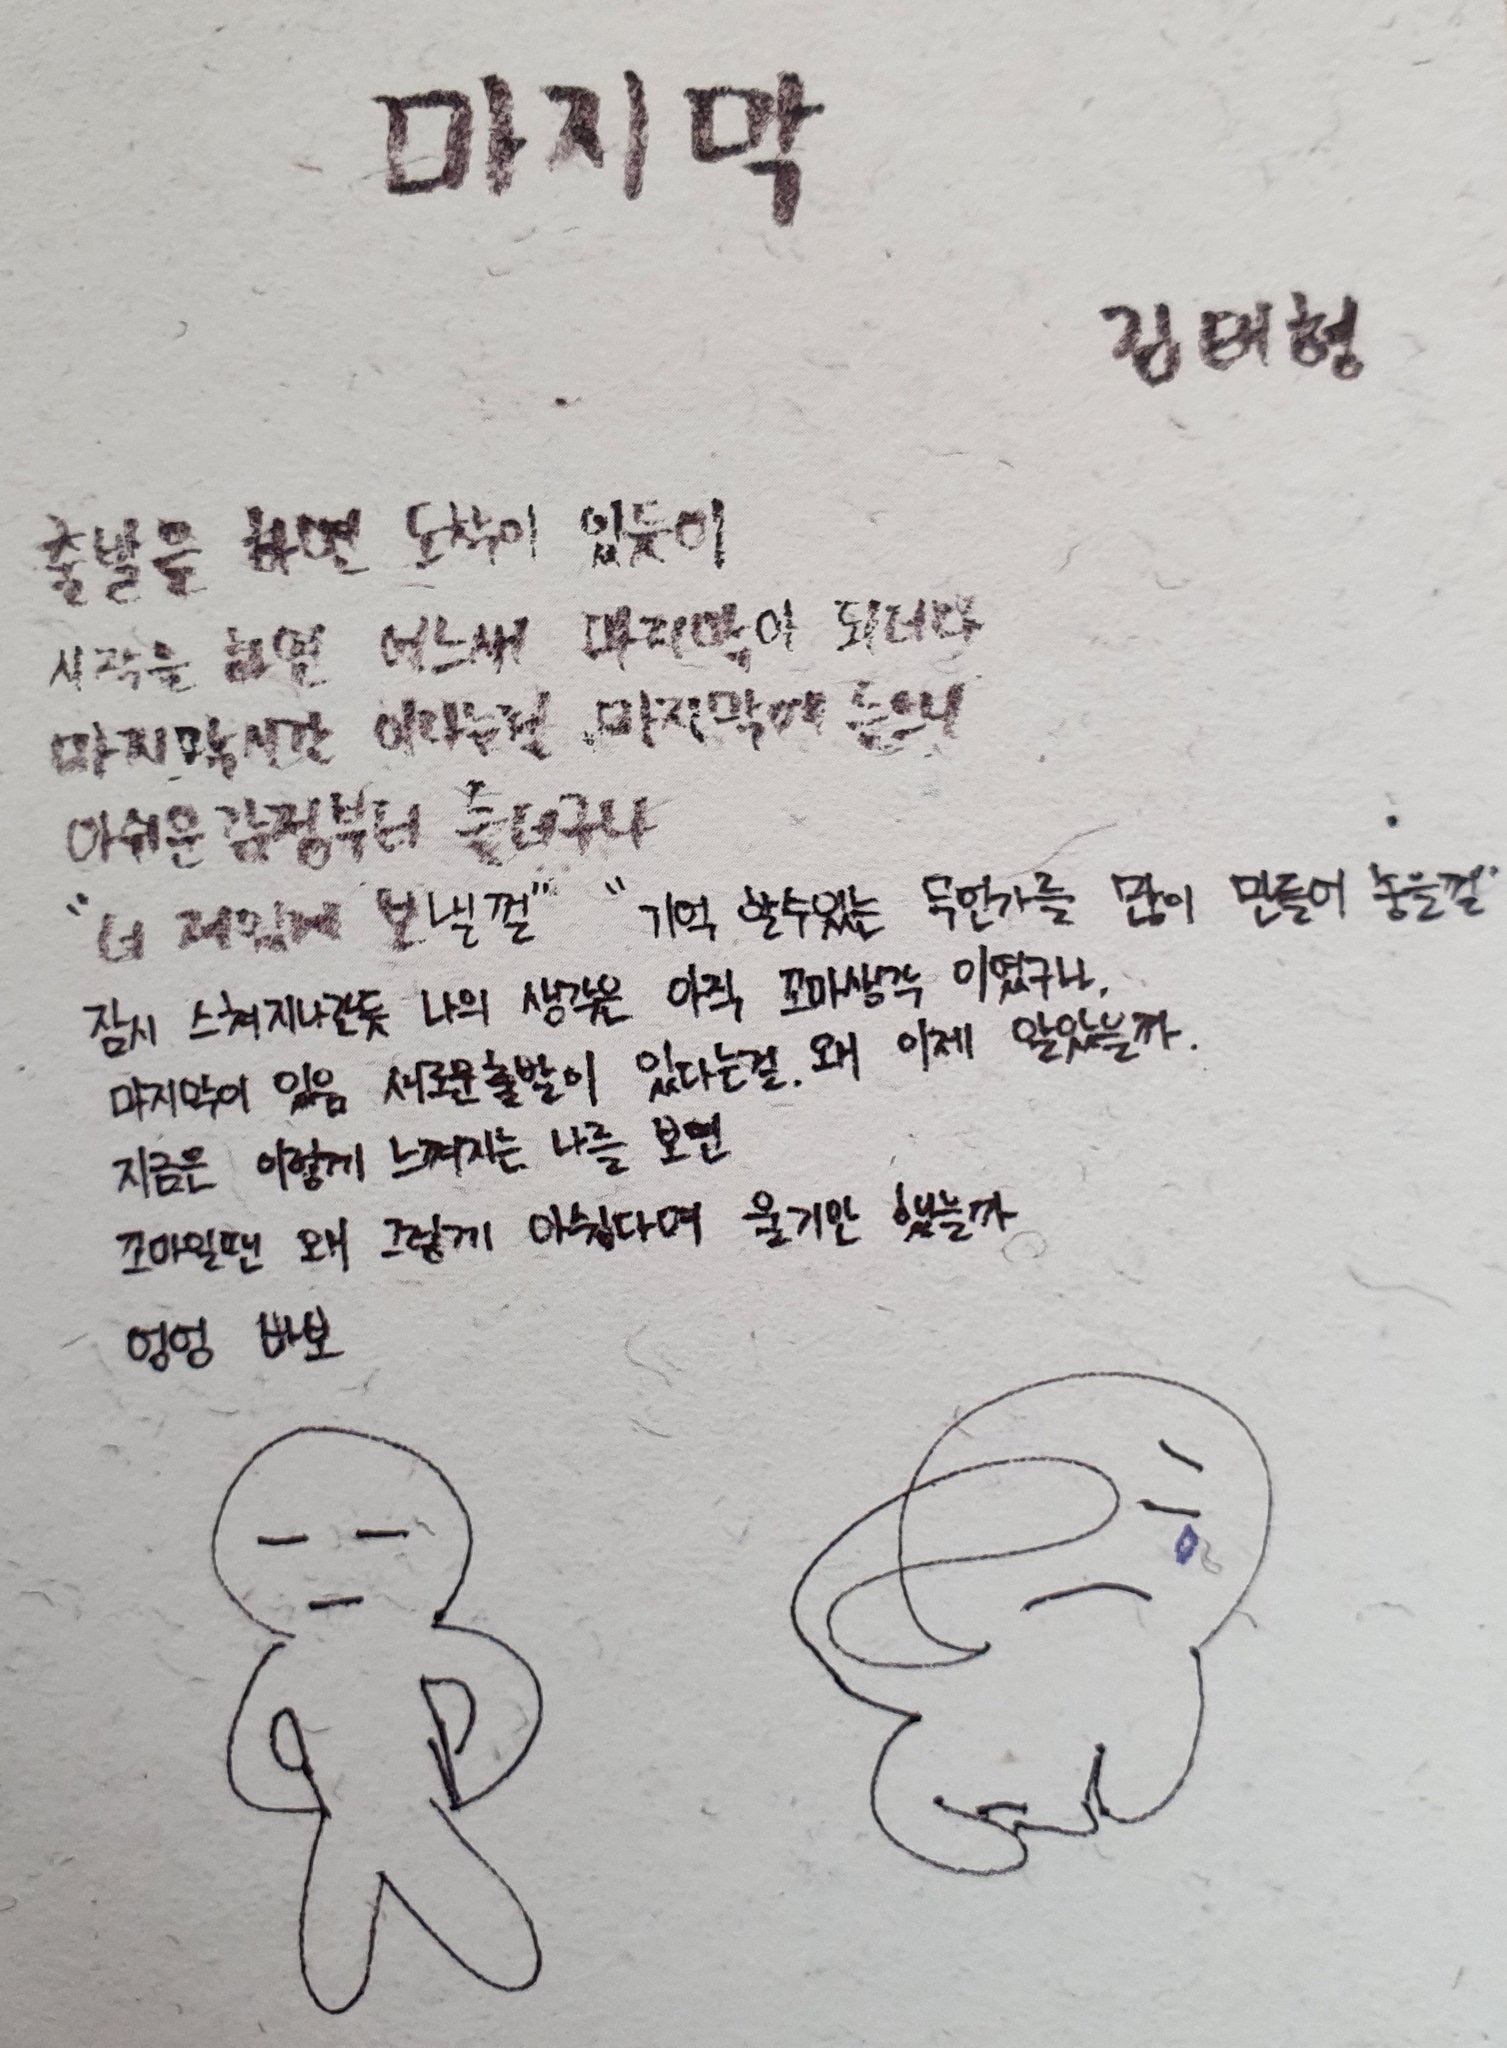 마지막
김태형
출발을 하면 도착이 있듯이
시작을 하면 어느새 마지막이 되더라
마지막시간 이라는걸 마지막에
아쉬운감정부터 더구나
"더 재밌게 보낼껄" "기억 할수있는 무언가를 많이 만들어 놓을껄"
잠시 스쳐지나간듯 나의 생각은 아직 꼬마생각 이였구나.
마지막이 있음 새로운출발이 있다는걸. 왜 이제 알았을까.
지금은 이렇게 느껴지는 나를 보면
꼬마일땐 왜 그렇게 아쉽다며 울기만 했을까
엉엉 바보